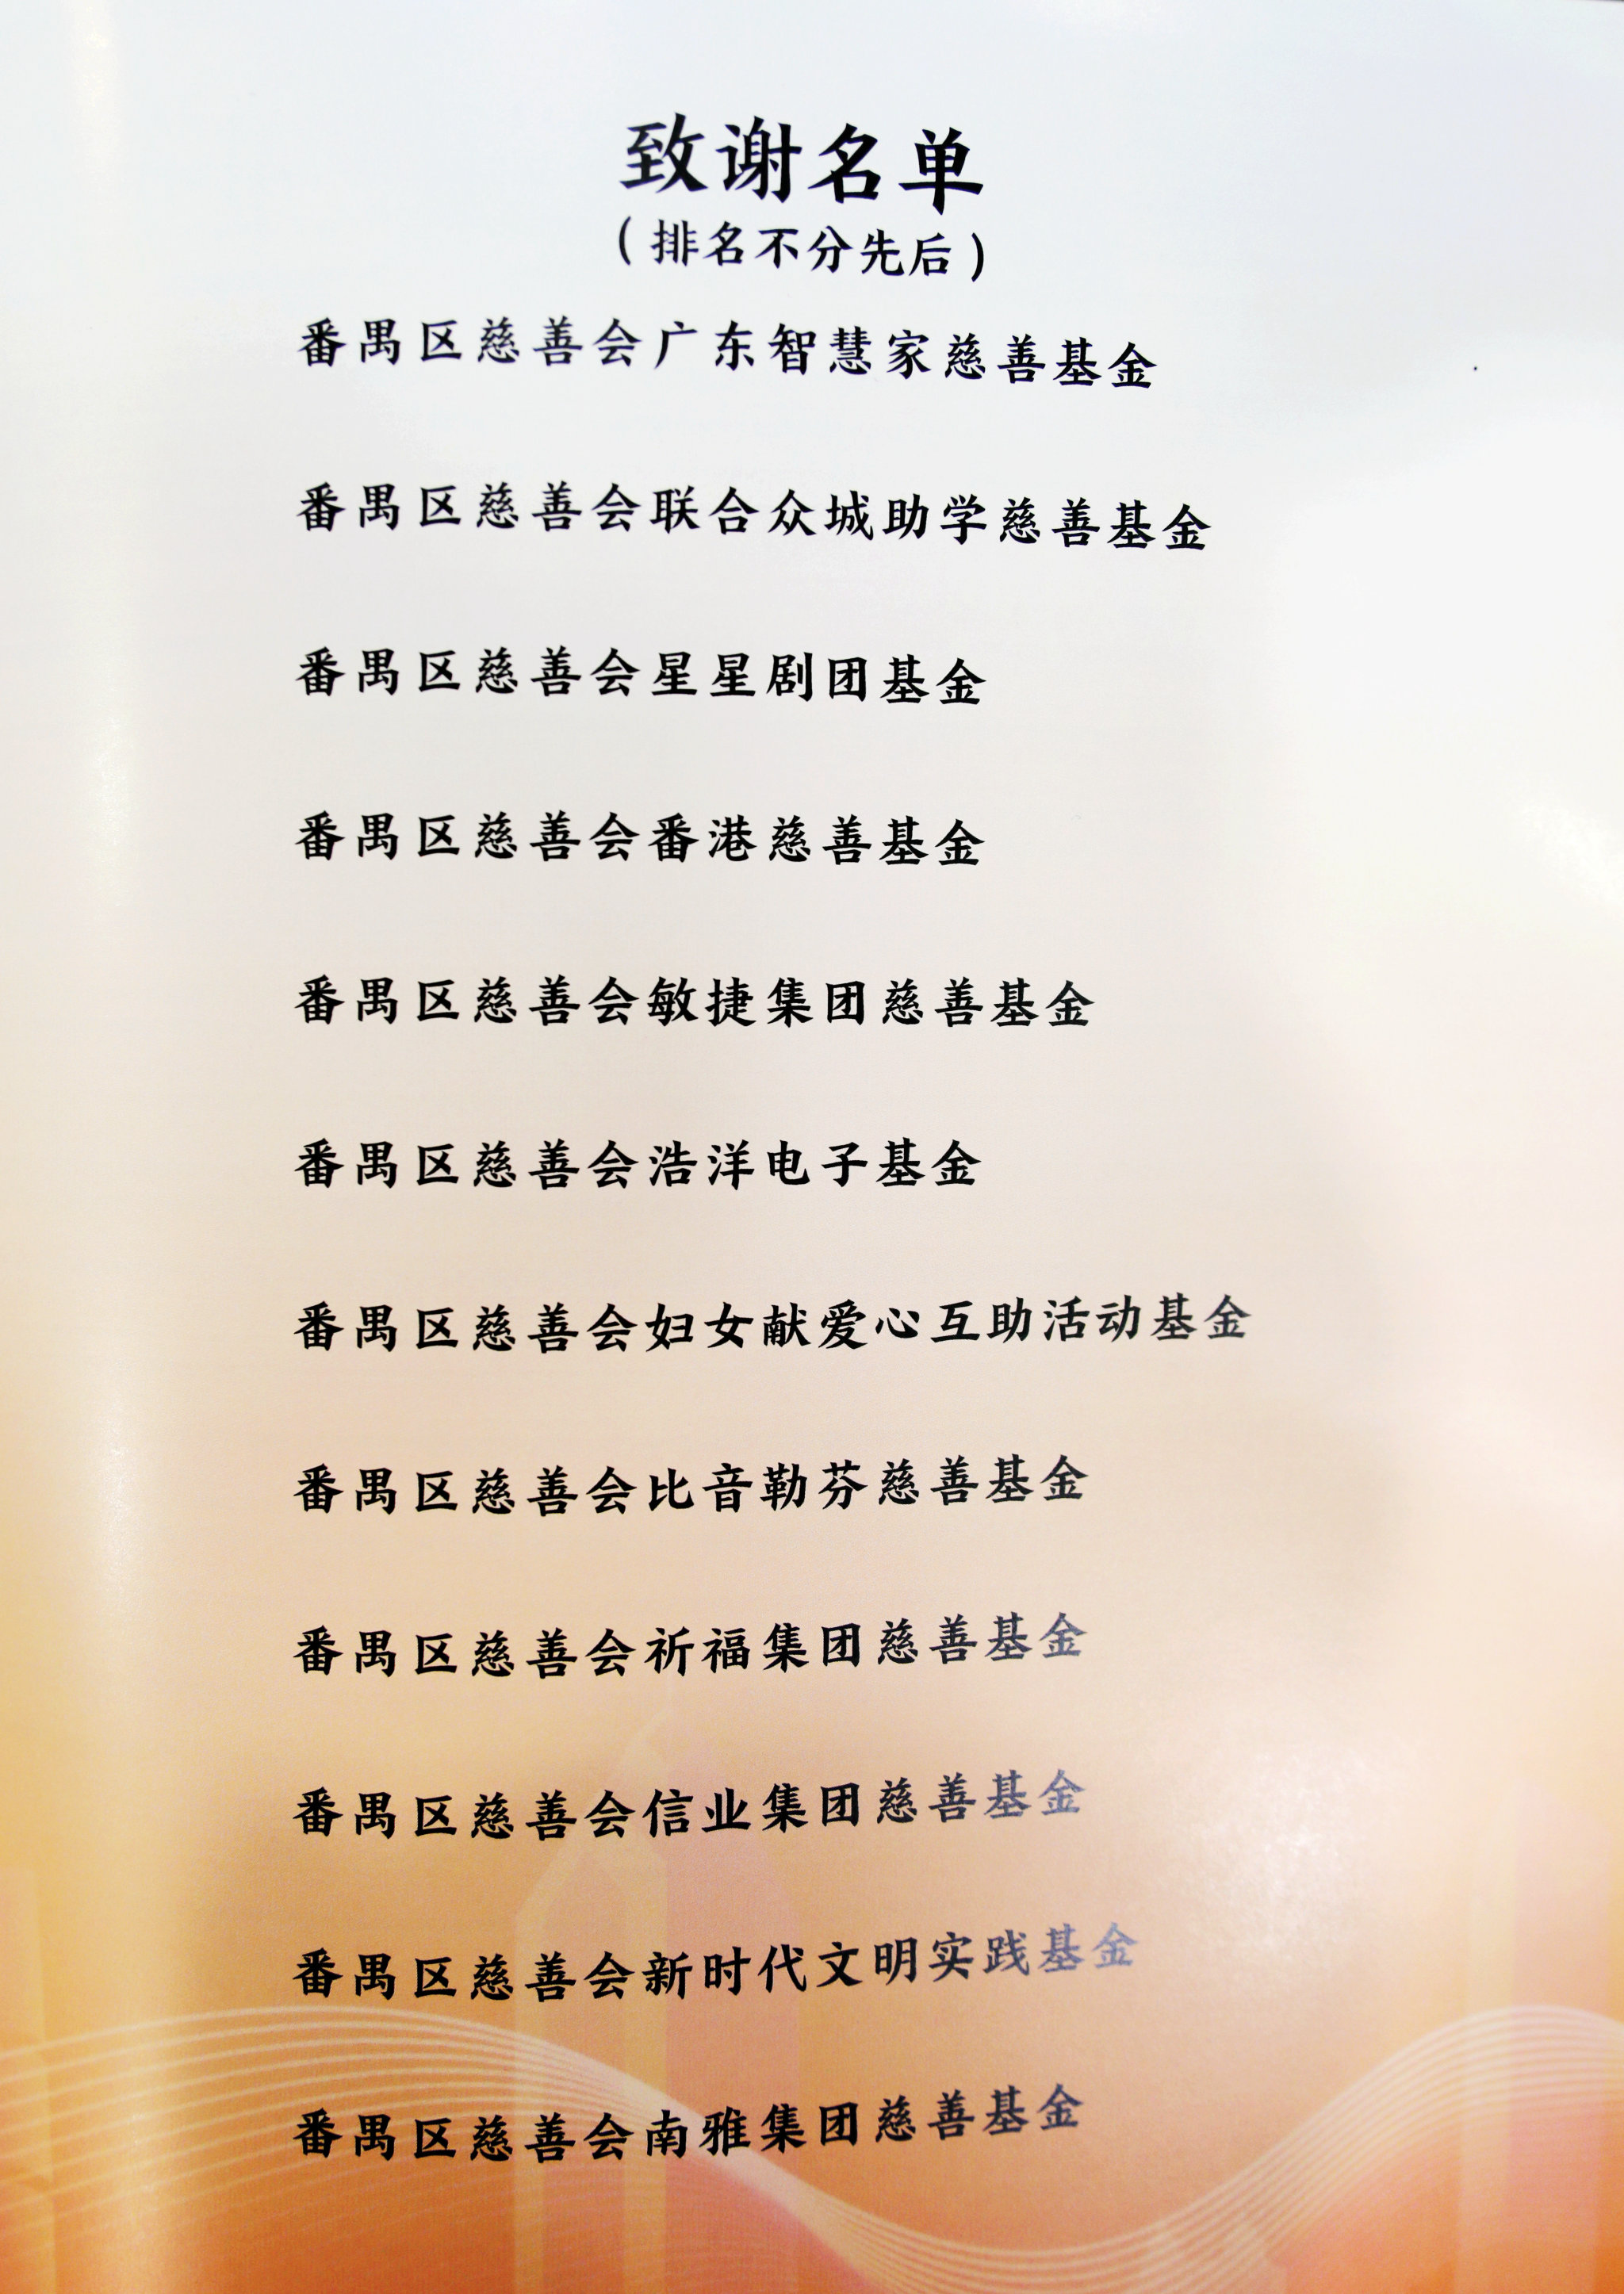 致谢名单
（排名不分先后）
番禺区慈善会广东智慧家慈善基金
番禺区慈善会联合众城助学慈善基金
番禺区慈善会星星剧团基金
番禺区慈善会番港慈善基金
番禺区慈善会敏捷集团慈善基金
番禺区慈善会浩洋电子基金
番禺区慈善会妇女献爱心互助活动基金
番禺区慈善会比音勒芬慈善基金
番禺区慈善会祈福集团慈善基金
番禺区慈善会信业集团慈善基金
番禺区慈善会新时代文明实践基金
番禺区慈善会南雅集团慈善基金